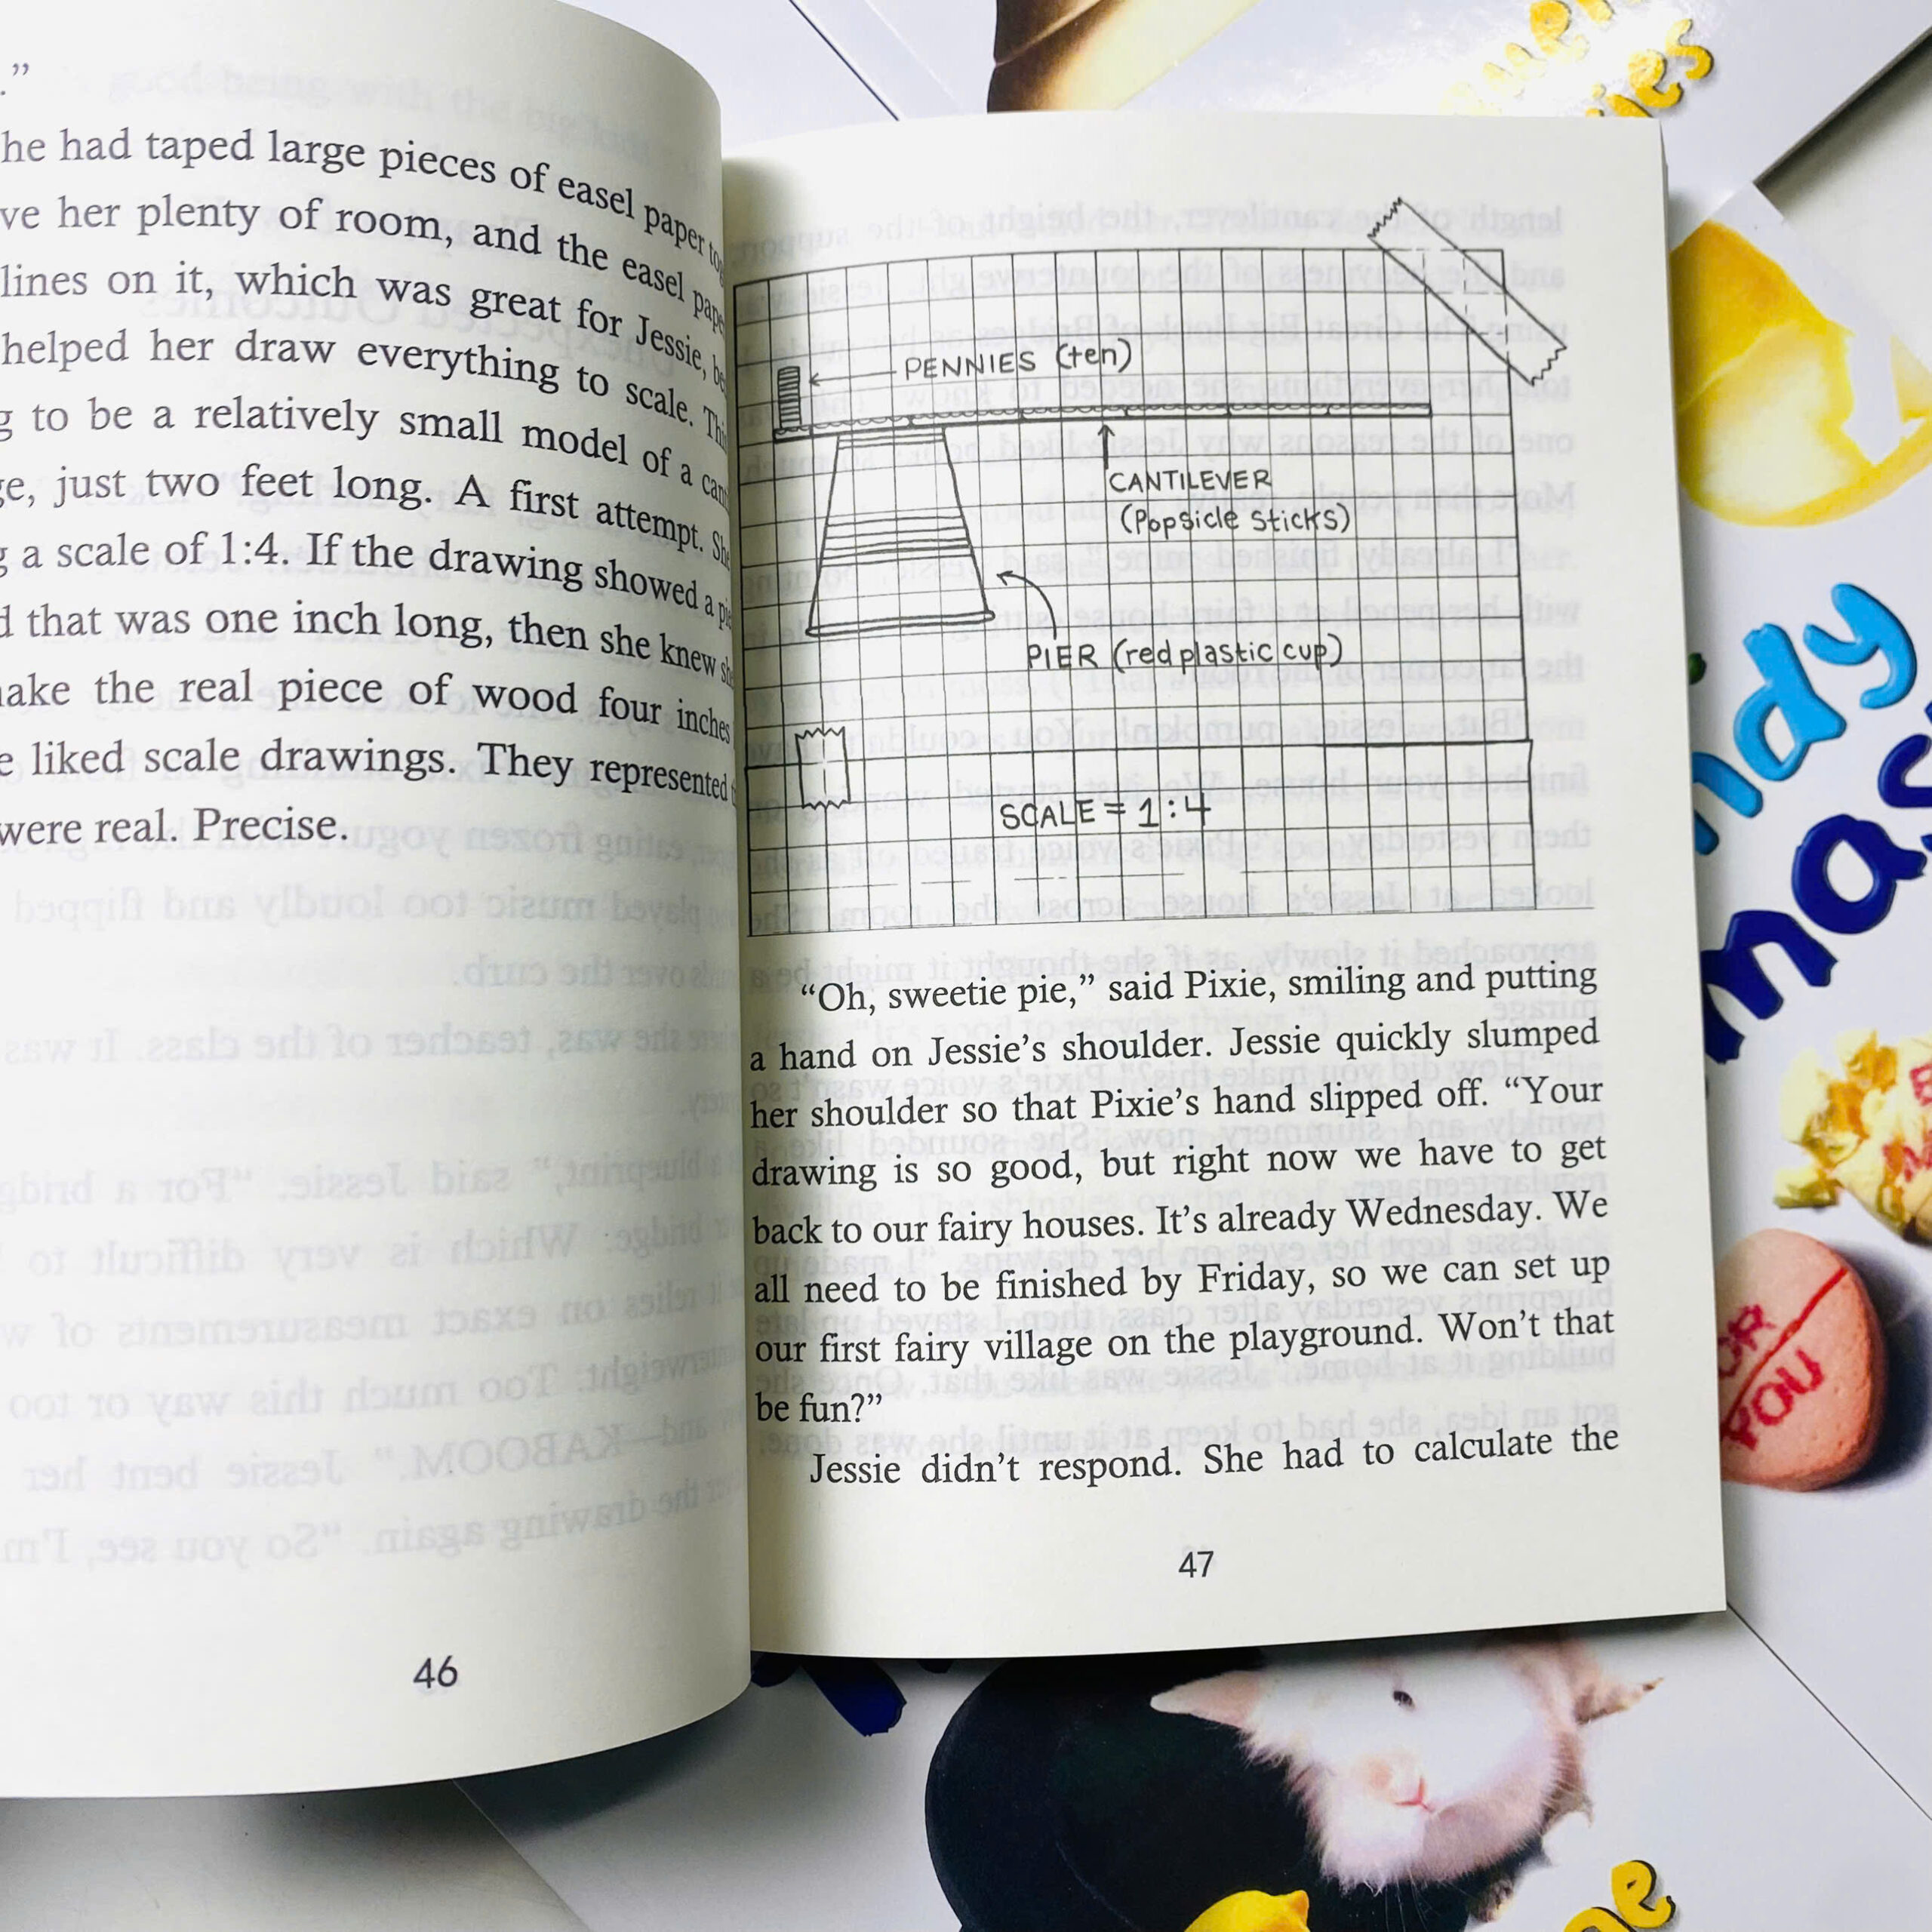 .”
he had taped large pieces of easel paper
ve her plenty of room, and the easel
lines on it, which was great for Jessie,
helped her draw everything to scale.
g to be a relatively small model of a
ge, just two feet long. A first attempt.
g a scale of 1:4. If the drawing showed a
d that was one inch long, then she knew
ake the real piece of wood four inches
e liked scale drawings. They represented
were real. Precise.
46
PENNIES (ten)
CANTILEVER
(Popsicle Sticks)
PIER (red plastic cup)
SCALE = 1:4
“Oh, sweetie pie,” said Pixie, smiling and putting
a hand on Jessie’s shoulder. Jessie quickly slumped
her shoulder so that Pixie’s hand slipped off. “Your
drawing is so good, but right now we have to get
back to our fairy houses. It’s already Wednesday. We
all need to be finished by Friday, so we can set up
our first fairy village on the playground. Won’t that
be fun?”
Jessie didn’t respond. She had to calculate the
47
OR
YOU